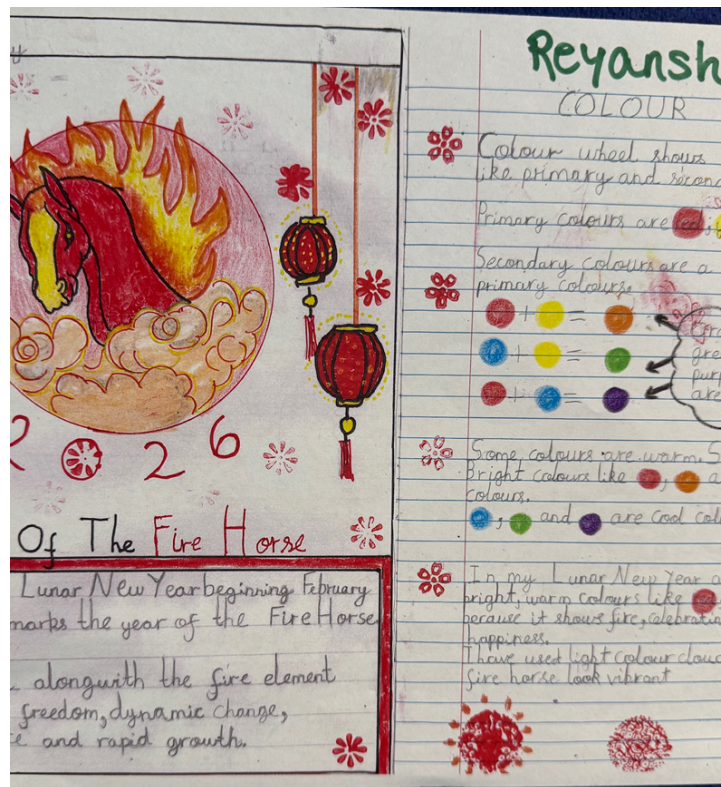 2026
Of The Fire Horse
Lunar New Year beginning February
marks the year of the Fire Horse
alongwith the fire element
freedom, dynamic change,
and rapid growth.
Reyansh
COLOUR
Colour wheel shows
like primary and
Primary colours are red,
Secondary colours are a
primary colours.
+ =
+ =
+ =
Some colours are warm. S
Bright colours like , a
colours.
, and are cool col
In my Lunar New Year a
bright, warm colours like red
because it shows fire, celebratin
happiness.
I have used light colour clou
fire horse look vibrant